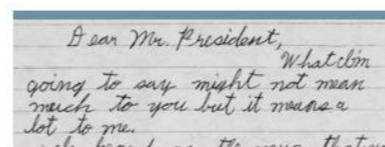 Dear Mr. President,
What I'm
going to say might not mean
much to you but it means a
lot to me.